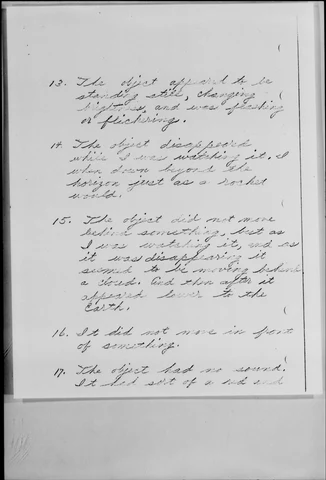 13. The object appeard to be
standing still, changing
brightness, and was flashing
or flickering.
14. The object disappeared
while I was watching it. I
when down beyond the
horizon just as a rocket
would.
15. The object did not move
behind something, but as
I was watching it, and as
it was disappearing it
seemed to be moving behind
a cloud. And then after it
appeared lower to the
Earth.
16. It did not move in front
of something.
17. The object had no sound.
It had sort of a red and